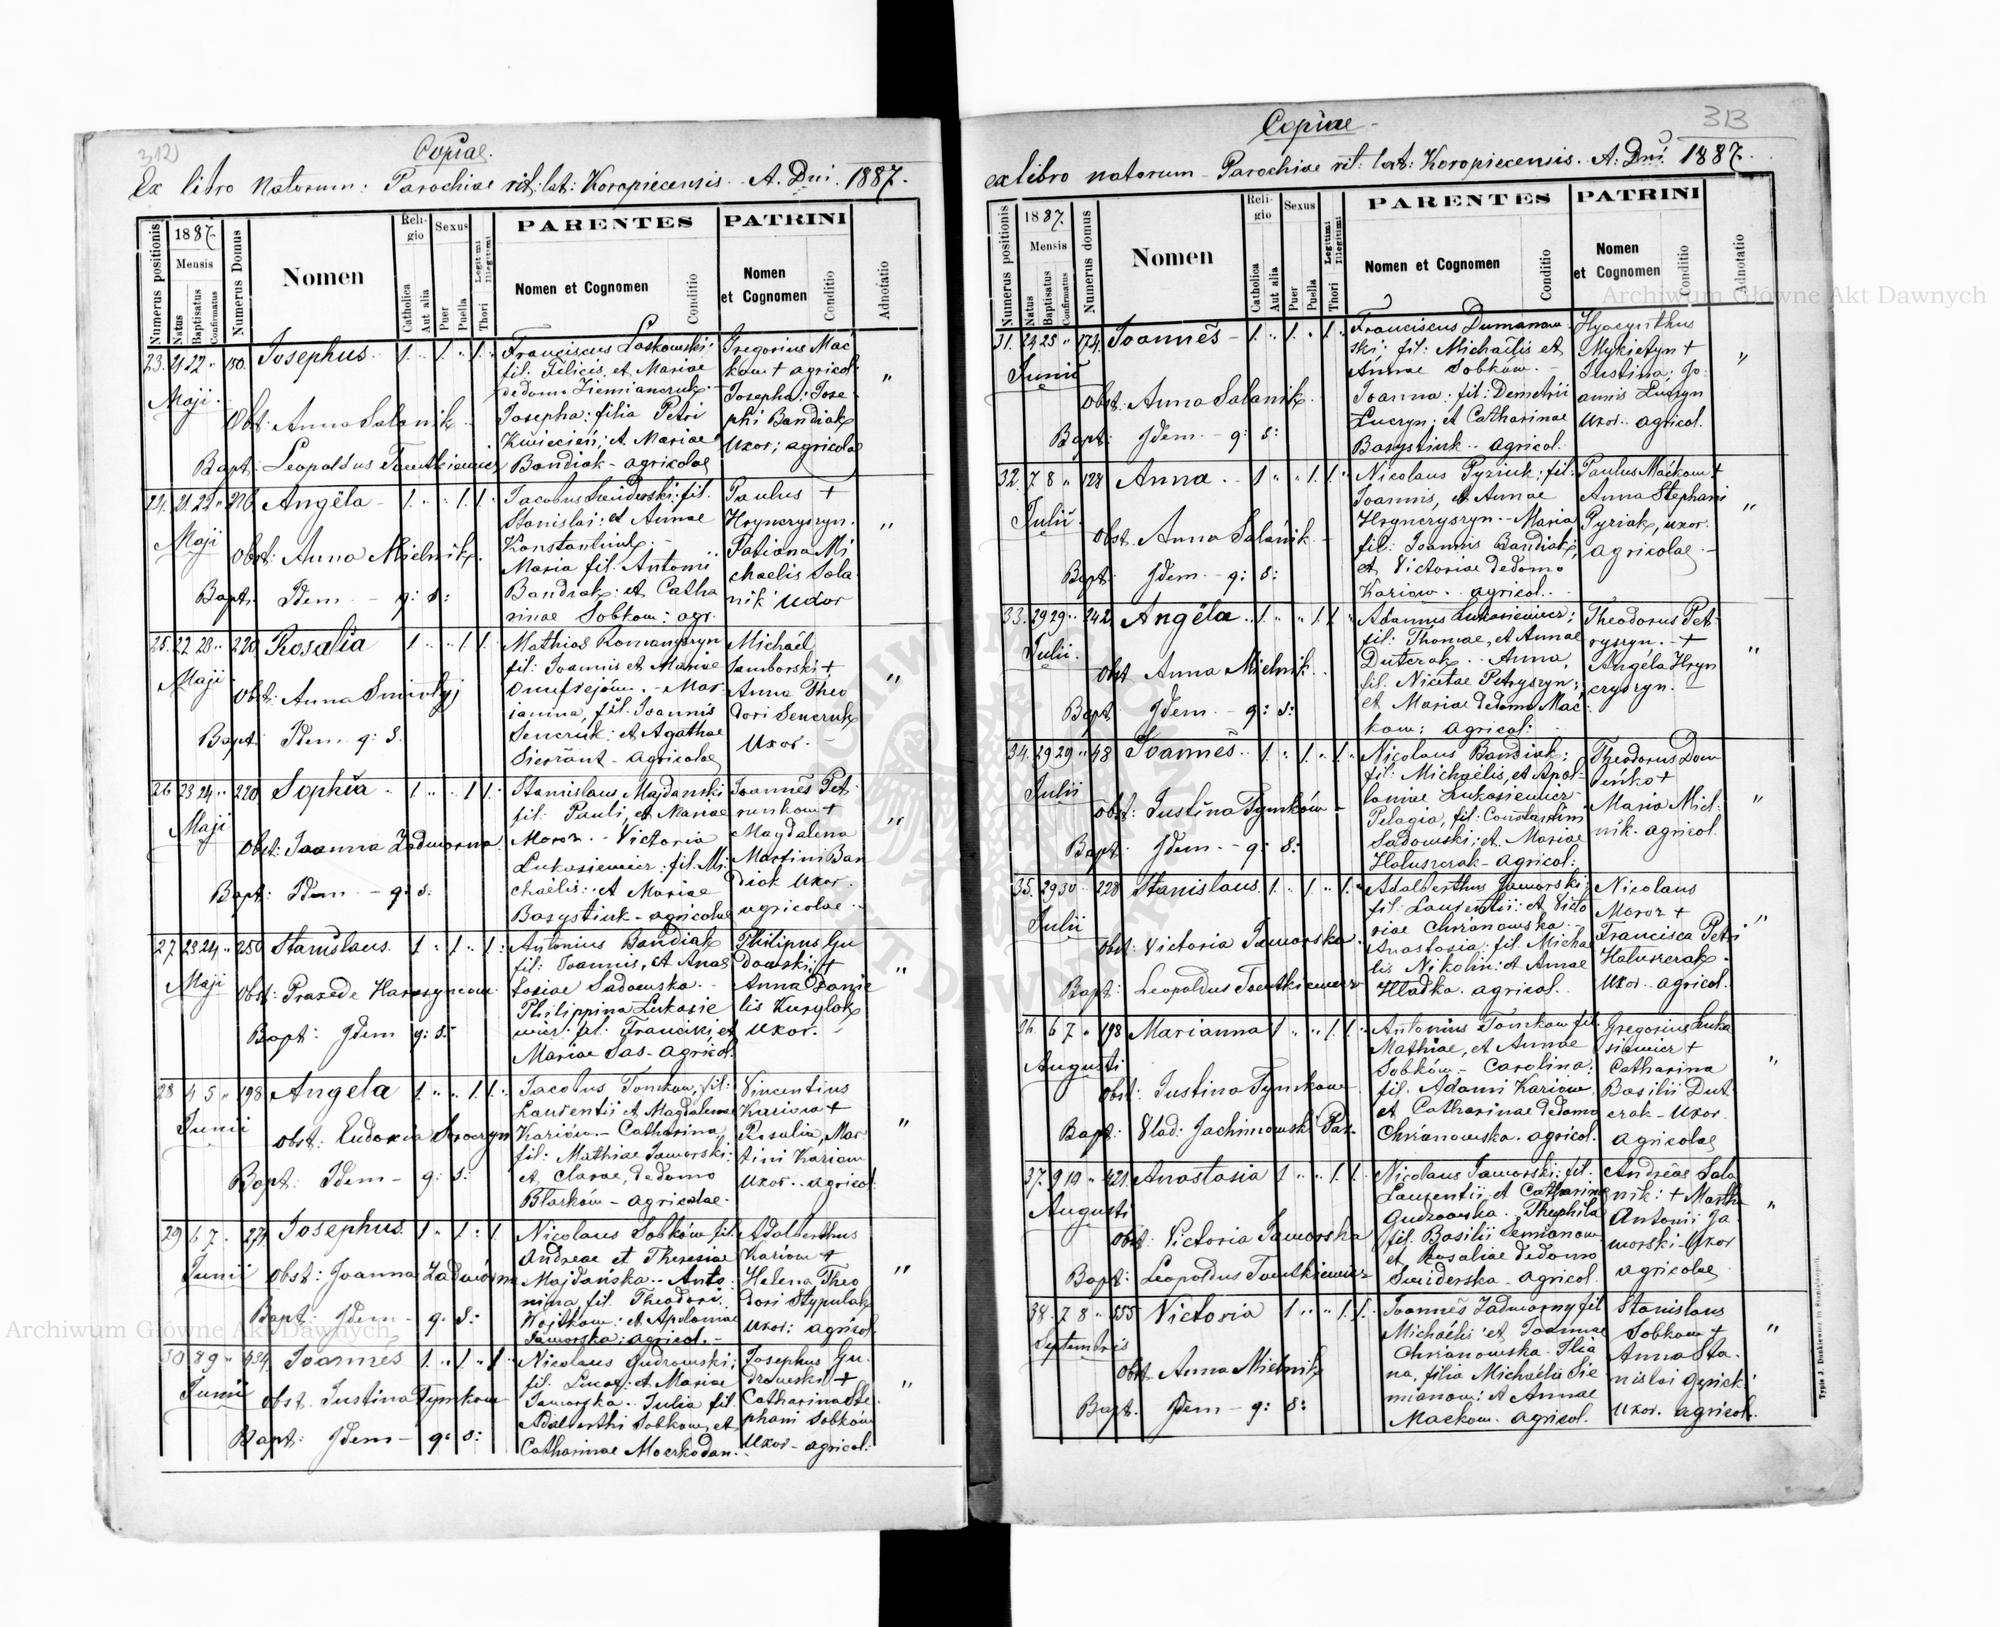 312
Copiae.
Ex libro Natorum: Parochiae rit: lat: Koropiecensis. A. Dni. 1887.
Numerus positionis
1887.
Mensis
Natus
Baptisatus
Confirmatus
Numerus Domus
Nomen
Religio
Catholica
Aut alia
Sexus
Puer
Puella
Legitimi
Illegitimi
Thori
PARENTES
Nomen et Cognomen
Conditio
PATRINI
Nomen
et Cognomen
Conditio
Adnotatio
23. 21 22 " 150. Josephus. 1. " 1. " 1.
Maji.
Obst. Anna Salanik.
Bapt: Leopoldus
Franciscus Laskowski:
fil. Felicis, et Mariae
dedomo Ziemianczuk.
Josepha: filia Petri
Kwiecień; et Mariae
Bandiak - agricolae
Gregorius Mać
ków + agricol:
Josepha: Jose
phi Bandiak
Uxor; agricolae
"
24. 21. 22 " Angëla - 1. " " 1. 1.
Maji
Obst: Anna Mielnik.
Bapt. Idem - q: s:
Jacobus fil.
Stanislai: et Annae
Maria fil. Antonii
Bandiak: et Catha
rinae Sobkow: agr.
Paulus +
Hryncryszyn.
Tatiana Mi
chaelis Sola
nik Uxor
"
25. 22 28 " 220 Rosalia 1 " " 1. 1.
Maji
Obst: Anna
Bapt: Idem q: s.
Mathias Romanyszyn
fil: Joannis et Mariae
Onufrejów. - Mar
ianna, fil. Joannis
Senczuk: et Agathae
Sierżant - agricolae
Michaël
Jamborski +
Anna Theo
dori Senczuk
Uxor. -
"
26 23 24 " 220 Sophia 1 " " 1 1.
Maji
Obst: Joanna Zadworna.
Bapt: Idem - q: s.
Stanislaus Majdanski
fil: Pauli, et Mariae
Moroz. - Victoria
Łukasiewicz. fil. Mi
chaëlis: et Mariae
Basystiuk - agricolae
Joannes Pet
runkow +
Magdalena
Martini Ban
diak Uxor.
agricolae. -
"
27. 23 24 " 250 Stanislaus. 1 " 1 " 1:
Maji
Obst: Praxede
Bapt: Idem q: s:
Antonius Bandiak
fil: Joannis, et Anas
tasiae Sadowska. -
Philippina Łukasie
wicz. fil. Francisci, et
Mariae Sas - agricol.
Philipus Gu
dowski; +
Anna Danie
lis Kurylok
Uxor. -
"
28 4 5 " 198 Angela 1. " " 1. 1.
Junii
obst: Eudoxia
Bapt: Idem - q: s:
Jacobus Tomkow, fil:
Laurentii et Magdalenae
Kariów - Catharina
fil: Mathiae Jaworski:
et Clarae, dedomo
Błasków - agricolae.
Vincentius
Kariow +
Rosalia, Mar
tini Kariow
Uxor. - agricol:
"
29 6 7 " Josephus. 1 " 1 " 1.
Junii
Obst: Joanna Zadwórna
Bapt: Idem - q. s:
Nicolaus Sobków, fil:
Andreae et Theresiae
Majdańska. - Anto
nina, fil. Theodori
Wojtkow: et Apoloniae
Jaworska: agricol. -
Adalberthus
Kariow +
Helena Theo
dori Stypulak
Uxor: agricol.
"
30 8 9 " 434. Joannes 1. " 1. " 1.
Junii
obst. Justina Tymkow
Bapt: Idem - q: s:
Nicolaus Gudzowski;
fil. Lucae: et Mariae
Jaworska. - Julia fil.
Adalberthi Sobkow, et
Catharinae
Josephus Gu
drowski +
Catharina Ste
phani Sobków
Uxor - agricol.
"
313
Copiae -
ex libro natorum - Parochiae rit: lat: Koropiecensis. A. Dni 1887.
Numerus positionis
1887.
Mensis
Natus
Baptisatus
Confirmatus
Numerus domus
Nomen
Religio
Catholica
Aut alia
Sexus
Puer
Puella
Legitimi
Illegitimi
Thori
PARENTES
Nomen et Cognomen
Conditio
PATRINI
Nomen
et Cognomen
Conditio
Adnotatio
31. 24 25 " 174. Joannes - 1. " 1. " 1.
Junii
Obst: Anna Salanik.
Bapt: Idem - q: s:
Franciscus Dumanow
ski: fil: Michaëlis et
Annae Sobków. -
Joanna: fil: Demetrii
Łuczyn; et Catharinae
Basystiuk - agricol.
Hyacynthus
Mykietyn +
Justina: Jo
annis Łuczyn
uxor. agricol.
"
32. 7 8 " 128 Anna. - 1 " " 1. 1.
Julii
Obst. Anna Salanik -
Bapt: Idem - q: s:
Nicolaus Pyziuk; fil:
Joannis, et Annae
Hryncryszyn. - Maria
fil: Joannis Bandiak;
et Victoriae dedomo
Kariow. agricol.
Paulus Maćkow +
Anna Stephani
Pyziak, uxor.
agricolae -
"
33. 29 29 " 242 Angëla. 1. " " 1. 1.
Julii.
Obst Anna Mielnik.
Bapt. Idem - q: s:
Adamus Łukasiewicz;
fil: Thomae, et Annae
Dutczak. - Anna,
fil. Nicetae Petryszyn;
et Mariae dedomo Mać
kow: agricol:
Theodorus Pet
ryszyn. - +
Angela Hryn
cryszyn. -
"
34. 29 29 " 48 Joannes. 1. " 1. " 1.
Julii
Obst: Justina Tymków -
Bapt: Idem - q: s:
Nicolaus Bandiak:
fil: Michaëlis, et Apol
loniae Łukasiewicz -
Pelagia, fil: Constantini
Sadowski; et Mariae
Haluszczak - agricol:
Theodorus Dow
+
Maria Miel
nik. agricol.
"
35. 29 30 " 228 Stanislaus. 1. " 1. " 1.
Julii
Obst: Victoria Jaworska.
Bapt: Leopoldus
Adalberthus Jaworski;
fil: Laurentii: et Victo
riae Chrzanowska. -
Anastasia: fil. Micha
lis Nikolin: et Annae
Hładka. agricol.
Nicolaus
Moroz +
Francisca Petri
Haluszczak.
Uxor. agricol.
"
36. 6 7 " 198 Marianna 1 " " 1. 1.
Augusti
Obst: Justina Tymkow
Bapt: Vlad: Jachimowski Par.
Antonius Tomkow fil.
Mathiae, et Annae
Sobków - Carolina:
fil. Adami Kariow,
et Catharinae dedomo
Chrzanowska. agricol.
Gregorius Łuka
siewicz +
Catharina
Basilii Dut
czak - Uxor
agricolae
"
37. 9 10 " 421 Anastasia 1 " " 1. 1.
Augusti
Obst: Victoria Jaworska
Bapt: Leopoldus
Nicolaus Jaworski: fil.
Laurentii, et Catharinae
Gudzowska. Theophila
fil. Basilii Semianow
et Rosaliae dedomo
Swiderska - agricol.
Andreas Sala
nik: + Martha
Antonii Ja
worski Uxor
agricolae
"
38. 7 8 " 555 Victoria 1 " " 1. 1.
Septembris
Obst. Anna Mielnik
Bapt. Idem - q: s:
Joannes Zadworny fil
Michaëlis: et Joannae
Chrzanowska. Julia
na, filia Michaëlis Sie
mianow: et Annae
Mackow. agricol.
Stanislaus
Sobkow +
Anna Sta
nislai
Uxor. agricol.
"
Archiwum Główne Akt Dawnych
Archiwum Główne Akt Dawnych